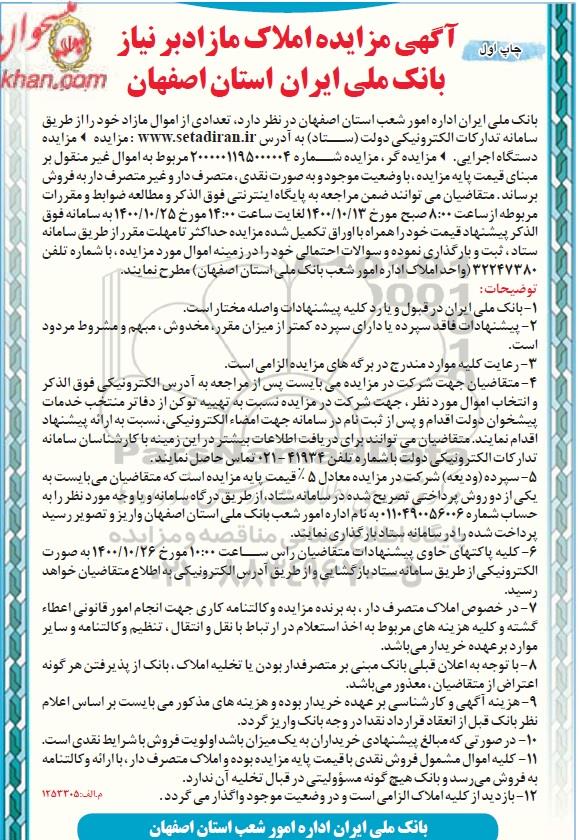 میسحوان
khan.com
چاپ اول
آگهی مزایده املاک مازادبر نیاز
بانک ملی ایران استان اصفهان
بانک ملی ایران اداره امور شعب استان اصفهان در نظر دارد، تعدادی از اموال مازاد خود را از طریق
سامانه تدارکات الکترونیکی دولت (ستاد) به آدرس www.setadiran.ir : مزایده ◄ مزایده
دستگاه اجرایی. ◄ مزایده گر، مزایده شماره ۲۰۰۰۰۰۱۱۹۵۰۰۰۰۰۴ مربوط به اموال غیر منقول بر
مبنای قیمت پایه مزایده، با وضعیت موجود و به صورت نقدی، متصرف دار و غیر متصرف دار به فروش
برساند. متقاضیان می توانند ضمن مراجعه به پایگاه اینترنتی فوق الذکر و مطالعه ضوابط و مقررات
مربوطه از ساعت ۸:۰۰ صبح مورخ ۱۴۰۰/۱۰/۱۳ لغایت ساعت ۱۴:۰۰ مورخ ۱۴۰۰/۱۰/۲۵ به سامانه فوق
الذکر پیشنهاد قیمت خود را همراه با اوراق تکمیل شده مزایده حداکثر تا مهلت مقرر از طریق سامانه
ستاد، ثبت و بارگذاری نموده و سوالات احتمالی خود را در زمینه اموال مورد مزایده، با شماره تلفن
۳۲۲۴۷۳۸۰ (واحد املاک اداره امور شعب بانک ملی استان اصفهان) مطرح نمایند.
توضیحات:
۱- بانک ملی ایران در قبول و یا رد کلیه پیشنهادات واصله مختار است.
۲- پیشنهادات فاقد سپرده یا دارای سپرده کمتر از میزان مقرر، مخدوش، مبهم و مشروط مردود
است.
۳- رعایت کلیه موارد مندرج در برگه های مزایده الزامی است.
۴- متقاضیان جهت شرکت در مزایده می بایست پس از مراجعه به آدرس الکترونیکی فوق الذکر
و انتخاب اموال مورد نظر، جهت شرکت در مزایده نسبت به تهییه توکن از دفاتر منتخب خدمات
پیشخوان دولت اقدام و پس از ثبت نام در سامانه جهت امضاء الکترونیکی، نسبت به ارائه پیشنهاد
اقدام نمایند. متقاضیان می توانند برای دریافت اطلاعات بیشتر در این زمینه با کارشناسان سامانه
تدارکات الکترونیکی دولت با شماره تلفن ۴۱۹۳۴-۰۲۱ تماس حاصل نمایند.
۵- سپرده (ودیعه) شرکت در مزایده معادل ۵٪ قیمت پایه مزایده است که متقاضیان می بایست به
یکی از دو روش پرداختی تصریح شده در سامانه ستاد، از طریق درگاه سامانه و یا وجه مورد نظر را به
حساب شماره ۰۱۱۰۴۹۰۰۵۶۰۰۶ به نام اداره امور شعب بانک ملی استان اصفهان واریز و تصویر رسید
پرداخت شده را در سامانه ستاد بارگذاری نمایند.
۶- کلیه پاکتهای حاوی پیشنهادات متقاضیان راس ساعت ۱۰:۰۰ مورخ ۱۴۰۰/۱۰/۲۶ به صورت
الکترونیکی از طریق سامانه ستاد بازگشایی و از طریق آدرس الکترونیکی به اطلاع متقاضیان خواهد
رسید.
۷- در خصوص املاک متصرف دار، به برنده مزایده وکالتنامه کاری جهت انجام امور قانونی اعطاء
گشته و کلیه هزینه های مربوط به اخذ استعلام در ارتباط با نقل و انتقال، تنظیم وکالتنامه و سایر
موارد بر عهده خریدار می باشد.
۸- با توجه به اعلان قبلی بانک مبنی بر متصرفدار بودن یا تخلیه املاک، بانک از پذیرفتن هر گونه
اعتراض از متقاضیان، معذور می باشد.
۹- هزینه آگهی و کارشناسی بر عهده خریدار بوده و هزینه های مذکور می بایست بر اساس اعلام
نظر بانک قبل از انعقاد قرارداد نقدا در وجه بانک واریز گردد.
۱۰- در صورتی که مبالغ پیشنهادی خریداران به یک میزان باشد اولویت فروش با شرایط نقدی است.
۱۱- کلیه اموال مشمول فروش نقدی با قیمت پایه مزایده بوده و املاک متصرف دار، با ارائه وکالتنامه
به فروش می رسد و بانک هیچ گونه مسؤولیتی در قبال تخلیه آن ندارد.
۱۲- بازدید از کلیه املاک الزامی است و در وضعیت موجود واگذار می گردد.
م.الف: ۱۲۵۳۳۰۵
بانک ملی ایران اداره امور شعب استان اصفهان